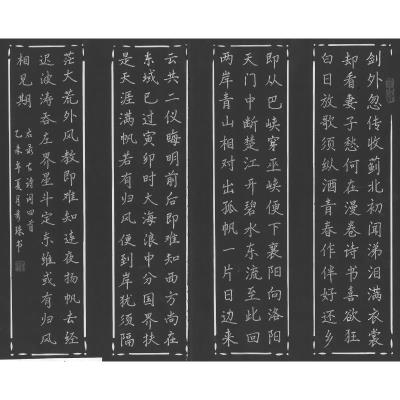 剑外忽传收蓟北初闻涕泪满衣裳
却看妻子愁何在漫卷诗书喜欲狂
白日放歌须纵酒青春作伴好还乡
即从巴峡穿巫峡便下襄阳向洛阳
天门中断楚江开碧水东流至此回
两岸青山相对出孤帆一片日边来
云共二仪晦明前后即难知西方尚在
东域已过寅卯时大海浪中分国界扶
是天涯满帆若有归风便到岸犹须隔
茫大荒外风教即难知连夜扬帆去经
迟波涛吞左界星斗定东维或有归风
相见期
古诗词四首
乙未年夏月秀珠书